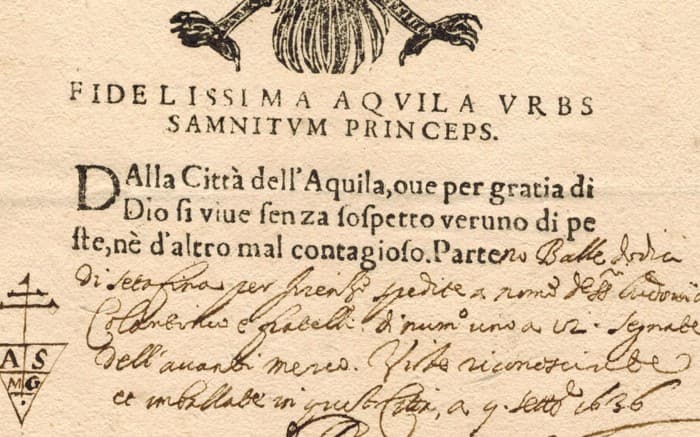 FIDELISSIMA AQVILA VRBS
SAMNITVM PRINCEPS.
DAlla Città dell'Aquila, oue per gratia di
Dio si viue senza sospetto veruno di pe
ste, nè d'altro mal contagioso. Parteno Balle dodici
di seta fina per spedite a nome
e fratelli di num.o uno a 12. segnate
dell'auanti merco. Viste riconosciute
et imballate in questa Città, a 9 sett.e 1636
A S
M G